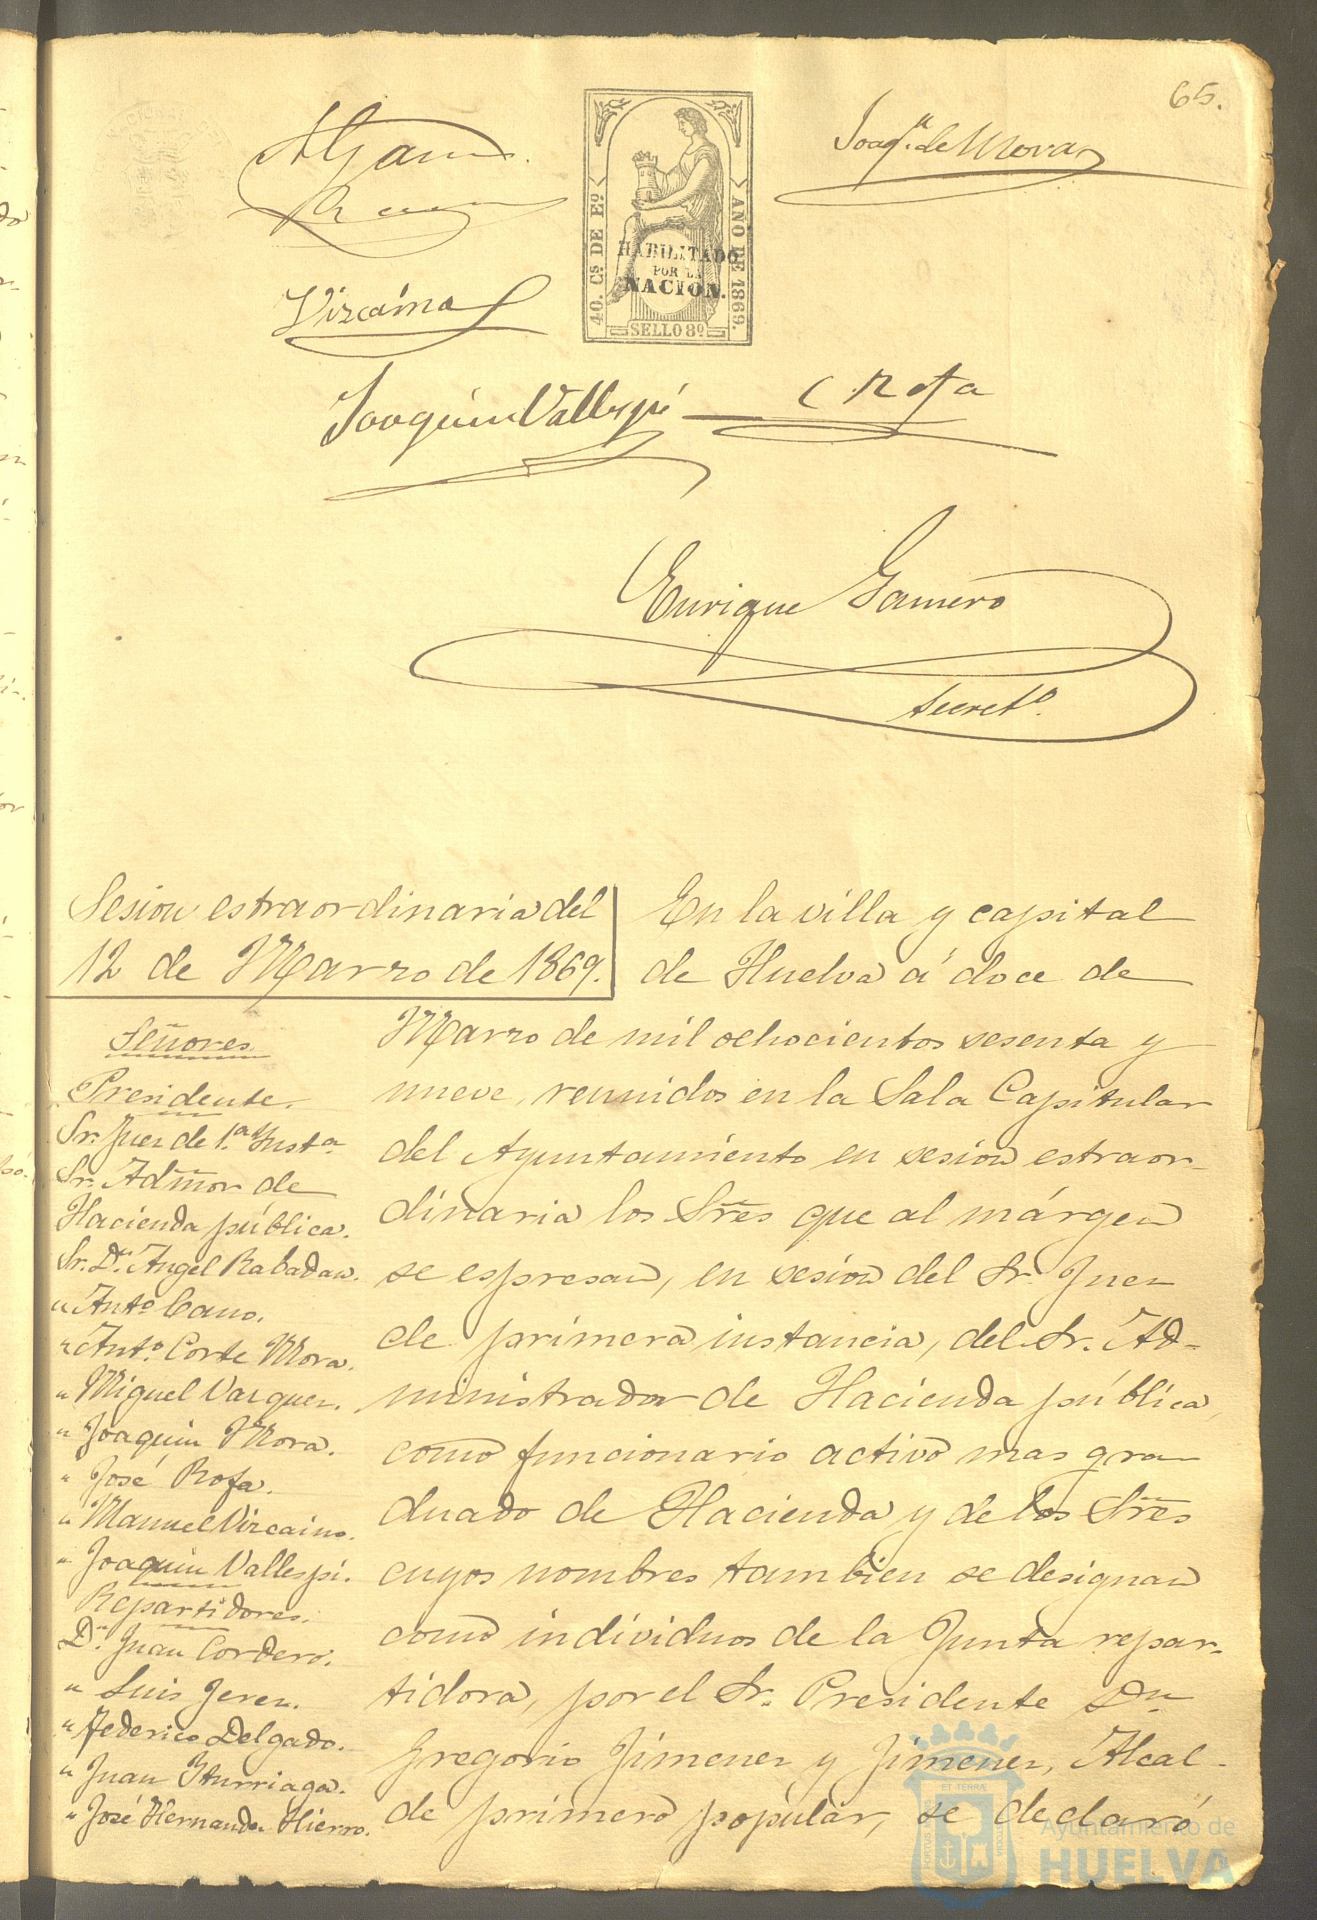 65.
Joaqn. de Mora
40. Cs DE Eo
AÑO DE 1869.
HABILITADO
POR LA
NACION.
SELLO 8º
Vizcaino
Joaquin Vallespí
Rofa
Enrique Gamero
Secreto.
Sesion estraordinaria del
12 de Marzo de 1869.
Señores
Presidente.
Sr. Juez de 1.ª Insta.
Sr. Admor de
Hacienda pública.
Sr. Dn. Angel Rabadan.
" Anto Cano.
" Anto. Corte Mora.
" Miguel Vazquez.
" Joaquin Mora.
" José Rofa.
" Manuel Vizcaino.
" Joaquin Vallespí.
Repartidores.
Dn. Juan Cordero.
" Luis Jerez.
" Federico Delgado.
" Juan Iturriaga.
" José Hernandez Hierro.
En la villa y capital
de Huelva á doce de
Marzo de mil ochocientos sesenta y
nueve, reunidos en la Sala Capitular
del Ayuntamiento en sesion estraor-
dinaria los Sres que al márgen
se espresan, en sesion del Sr. Juez
de primera instancia, del Sr. Ad-
ministrador de Hacienda pública,
como funcionario activo mas gra
duado de Hacienda y de los Sres
cuyos nombres tambien se designan
como individuos de la Junta repar-
tidora, por el Sr. Presidente Dn
Gregorio Jimenez y Jimenez, Alcal-
de primero popular, se declaró
Ayuntamiento de
HUELVA